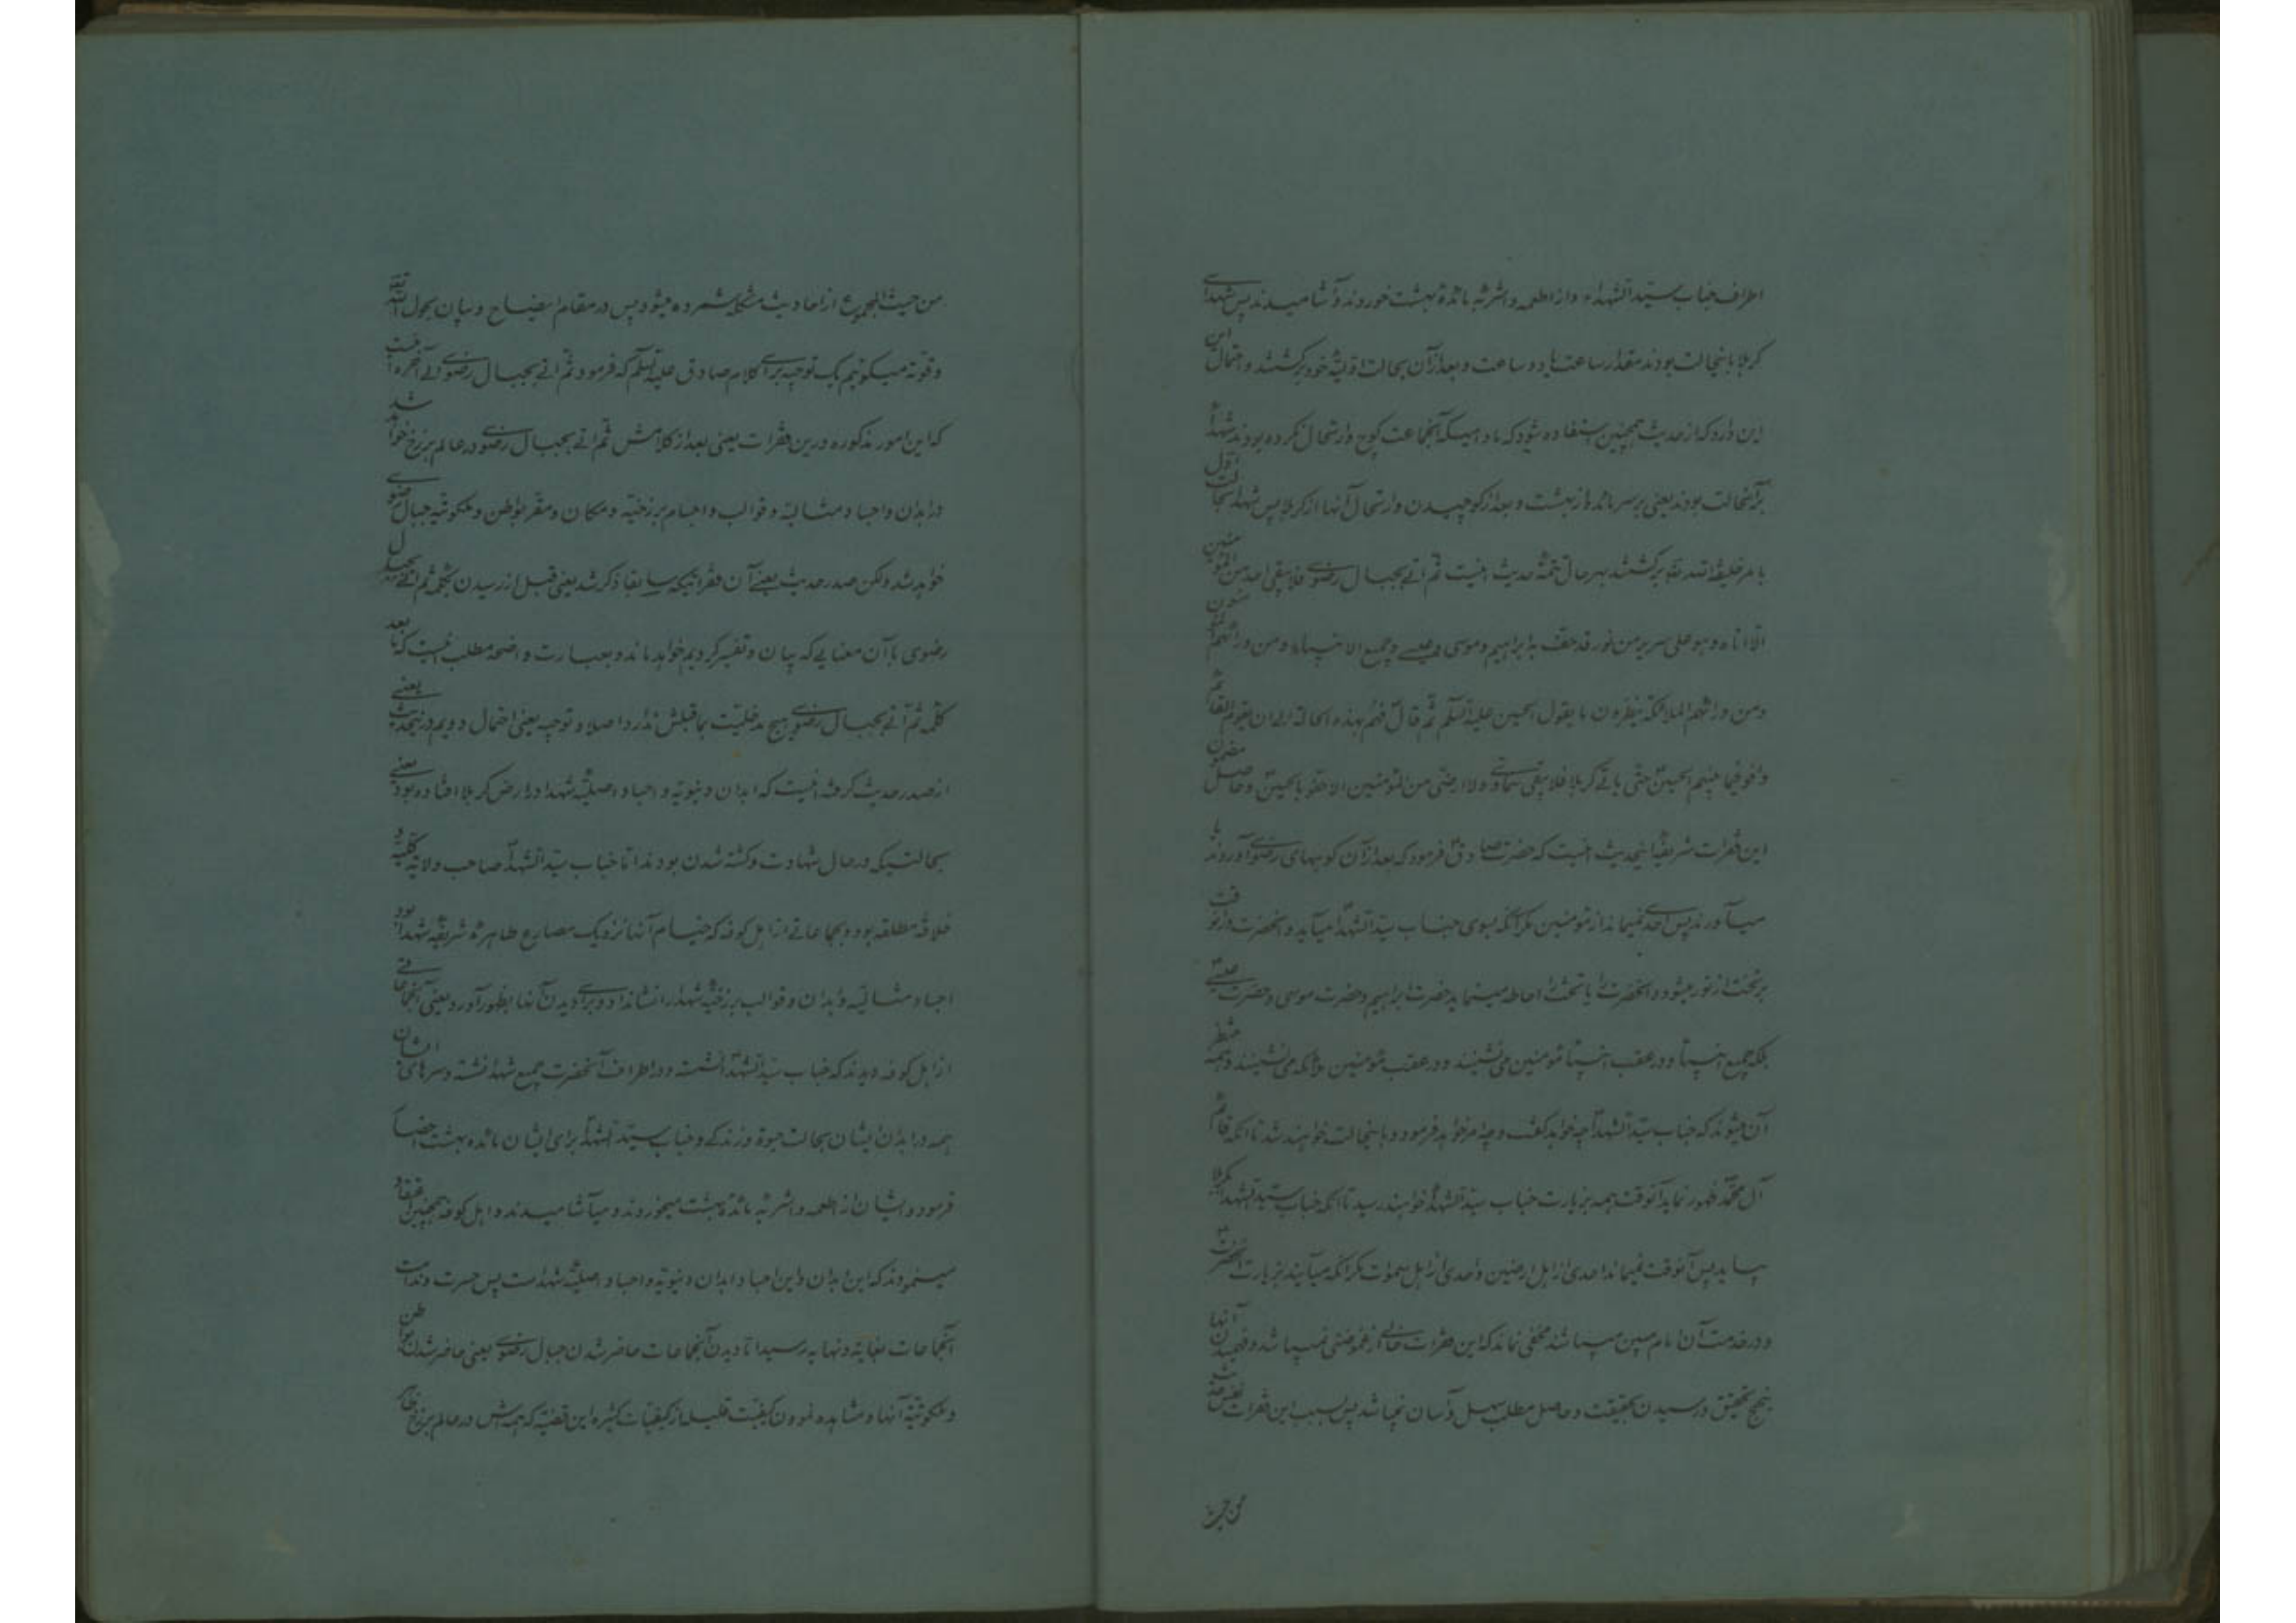 اطراف جناب سید الشهداء و از اطعمه و اشربه مائده بهشت خوردند و آشامیدند پس شهدای
کربلا باینحالت بودند مقدار ساعت یا دو ساعت و بعد از آن بحالت اولیه خود برگشتند و احتمال این
این دارد که از حدیث همچنین استفاده شود که مادامیکه آنجماعت کوچ و ارتحال نکرده بودند شهدا
برآنحالت بودند یعنی بر سر مائده از بهشت و بعد از کوچیدن و ارتحال آنها از کربلا پس شهدا بحالت اول
بامر خلیفة الله برگشتند بهر حال تتمه حدیث اینست ثم اتی بجبال رضوی فلا یبقی احد من المؤمنین
الا اتاه و هو علی سریر من نور قد حف به ابراهیم و موسی و عیسی و جمیع الانبیاء و من ورائهم المؤمنون
و من ورائهم الملائکة ینظرون ما یقول الحسین علیه السلم ثم قال فهم بهذه الحالة الی ان یقوم القائم
وافوا فیما بینهم الحسین حتی یاتی کربلا فلا یبقی سماوی و لا ارضی من المؤمنین الا حفوا بالحسین و حاصل مضمون
این فقرات شریفه اینحدیث اینست که حضرت صادق فرمود که بعد از آن کوههای رضوی آوردند یا
میآورند پس احدی نمیماند از مؤمنین مگر آنکه بسوی جناب سید الشهدا میآید و آنحضرت در آنوقت
بر تخت از نور میشود و آنحضرت را با تختش احاطه مینماید حضرت ابراهیم و حضرت موسی و حضرت عیسی
بلکه جمیع انبیا و در عقب انبیا مؤمنین می نشینند و در عقب مؤمنین ملائکه می نشینند و همه منتظر
آن میشوند که جناب سید الشهدا چه خواهد گفت و چه امر خواهد فرمود و باینحالت خواهند شد تا آنکه قائم
آل محمد ظهور نماید آنوقت همه بزیارت جناب سید الشهدا خواهند رسید تا آنکه جناب سید الشهدا بکربلا
بیاید پس آنوقت نمیماند احدی از اهل ارضین و احدی از اهل سموات مگر آنکه میآیند بزیارت آنحضرت
و در خدمت آن امام مبین میباشند مخفی نماند که این فقرات خالی از غموضتی نمیباشد و فهمیدن آنها
بنهج تحقیق و رسیدن بحقیقت و حاصل مطلب سهل و آسان نمیباشد پس بسبب این فقرات
من حیث
من حیث المجموع از احادیث مشکله شمرده میشود پس در مقام ایضاح و بیان بحول الله تعالی
و قوته میگوئیم یک توجیه برای کلام صادق علیه السلم که فرمود ثم اتی بجبال رضوی الی آخره اینست
که این امور مذکوره درین فقرات یعنی بعد از کلامش ثم اتی بجبال رضوی در عالم برزخ خواهد شد
در ابدان و اجساد مثالیه و قوالب و اجسام برزخیه و مکان و مقر بواطن و ملکوتیه جبال رضوی
خواهد شد ولکن صدر حدیث یعنی آن فقراتیکه سابقا ذکر شد یعنی قبل از رسیدن بکلمه ثم اتی بجبال
رضوی با آن معنایی که بیان و تفسیر کردیم خواهد ماند و بعبارت واضحه مطلب اینست که ما بعد
کلمه ثم اتی بجبال رضوی هیچ مدخلیت بماقبلش ندارد اصلا و توجیه یعنی احتمال دویم در اینحدیث یعنی
از صدر حدیث گرفته اینست که ابدان دنیویه و اجساد اصلیه شهدا در ارض کربلا افتاده بود یعنی
بحالتیکه در حال شهادت و کشته شدن بودند اما جناب سید الشهدا صاحب ولایة کلیه و
خلافة مطلقه بود و بجماعاتی از اهل کوفه که خیام آنها نزدیک مصارع طاهره شریفه شهدا بود
اجساد مثالیه و ابدان و قوالب برزخیه شهدا را نشانداد و برای دیدن آنها بظهور آورد یعنی آنجماعاتی
از اهل کوفه دیدند که جناب سید الشهدا نشسته و در اطراف آنحضرت جمیع شهدا نشسته و سرهای ایشان
همه در ابدان ایشان بحالت حیوة و زندگی و جناب سید الشهدا برای ایشان مائده بهشت احضار
فرمود و ایشان از اطعمه و اشربه مائده بهشت میخوردند و میآشامیدند و اهل کوفه همچنین اعتقاد
مینمودند که این ابدان و این اجساد ابدان دنیویه و اجساد اصلیه شهداست پس حسرت و ندامت
آنجماعات بغایة و نهایة رسید اما دیدن آنجماعات حاضر شدن جبال رضوی یعنی حاضر شدن بواطن
و ملکوتیه آنها و مشاهده نمودن کیفیت قلیله از کیفیات کثیره این قضیه که همه اش در عالم برزخ